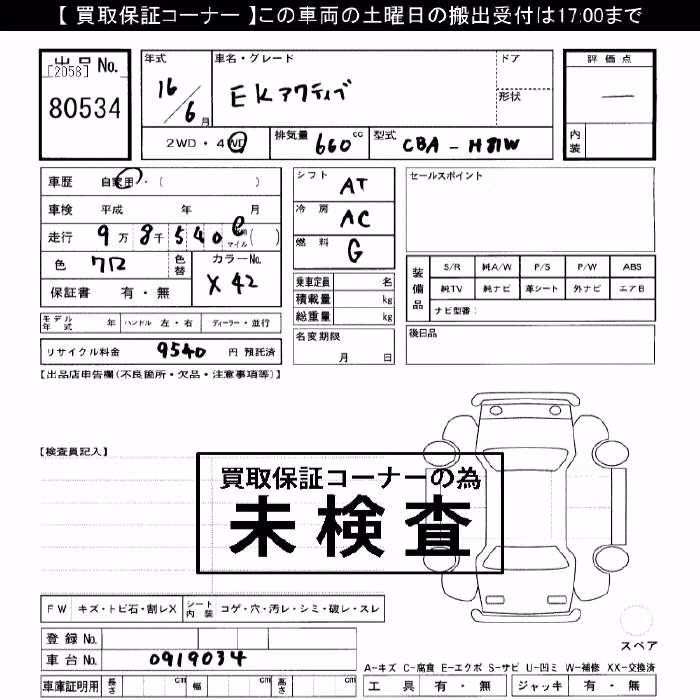 【 買取保証コーナー 】この車両の土曜日の搬出受付は17:00まで
出品 No.
[2058]
80534
年式
16/6月
車名・グレード
EKアクティブ
ドア
形状
2WD・4WD
排気量 660 cc
型式 CBA - H81W
評価点
―
内装
車歴 自家用・( )
車検 平成 年 月
走行 9万8千540 マイル( )
色 クロ
色替
カラーNo.
X42
保証書 有・無
シフト AT
冷房 AC
燃料 G
乗車定員 名
積載量 kg
総重量 kg
名変期限
月 日
セールスポイント
装備品
S/R 純A/W P/S P/W ABS
純TV 純ナビ 革シート 外ナビ エアB
ナビ型番:
後日品
モデル年式 年
ハンドル 左・右
ディーラー・並行
リサイクル料金 9540 円 預託済
【出品店申告欄(不良箇所・欠品・注意事項等)】
【検査員記入】
買取保証コーナーの為
未検査
FW キズ・トビ石・割レX
シート内装 コゲ・穴・汚レ・シミ・破レ・スレ
登録 No.
車台 No. 0919034
車庫証明用 長さ cm 幅 cm 高さ cm
スペア
A-キズ C-腐食 E-エクボ S-サビ U-凹ミ W-補修 XX-交換済
工具 有・無 ジャッキ 有・無